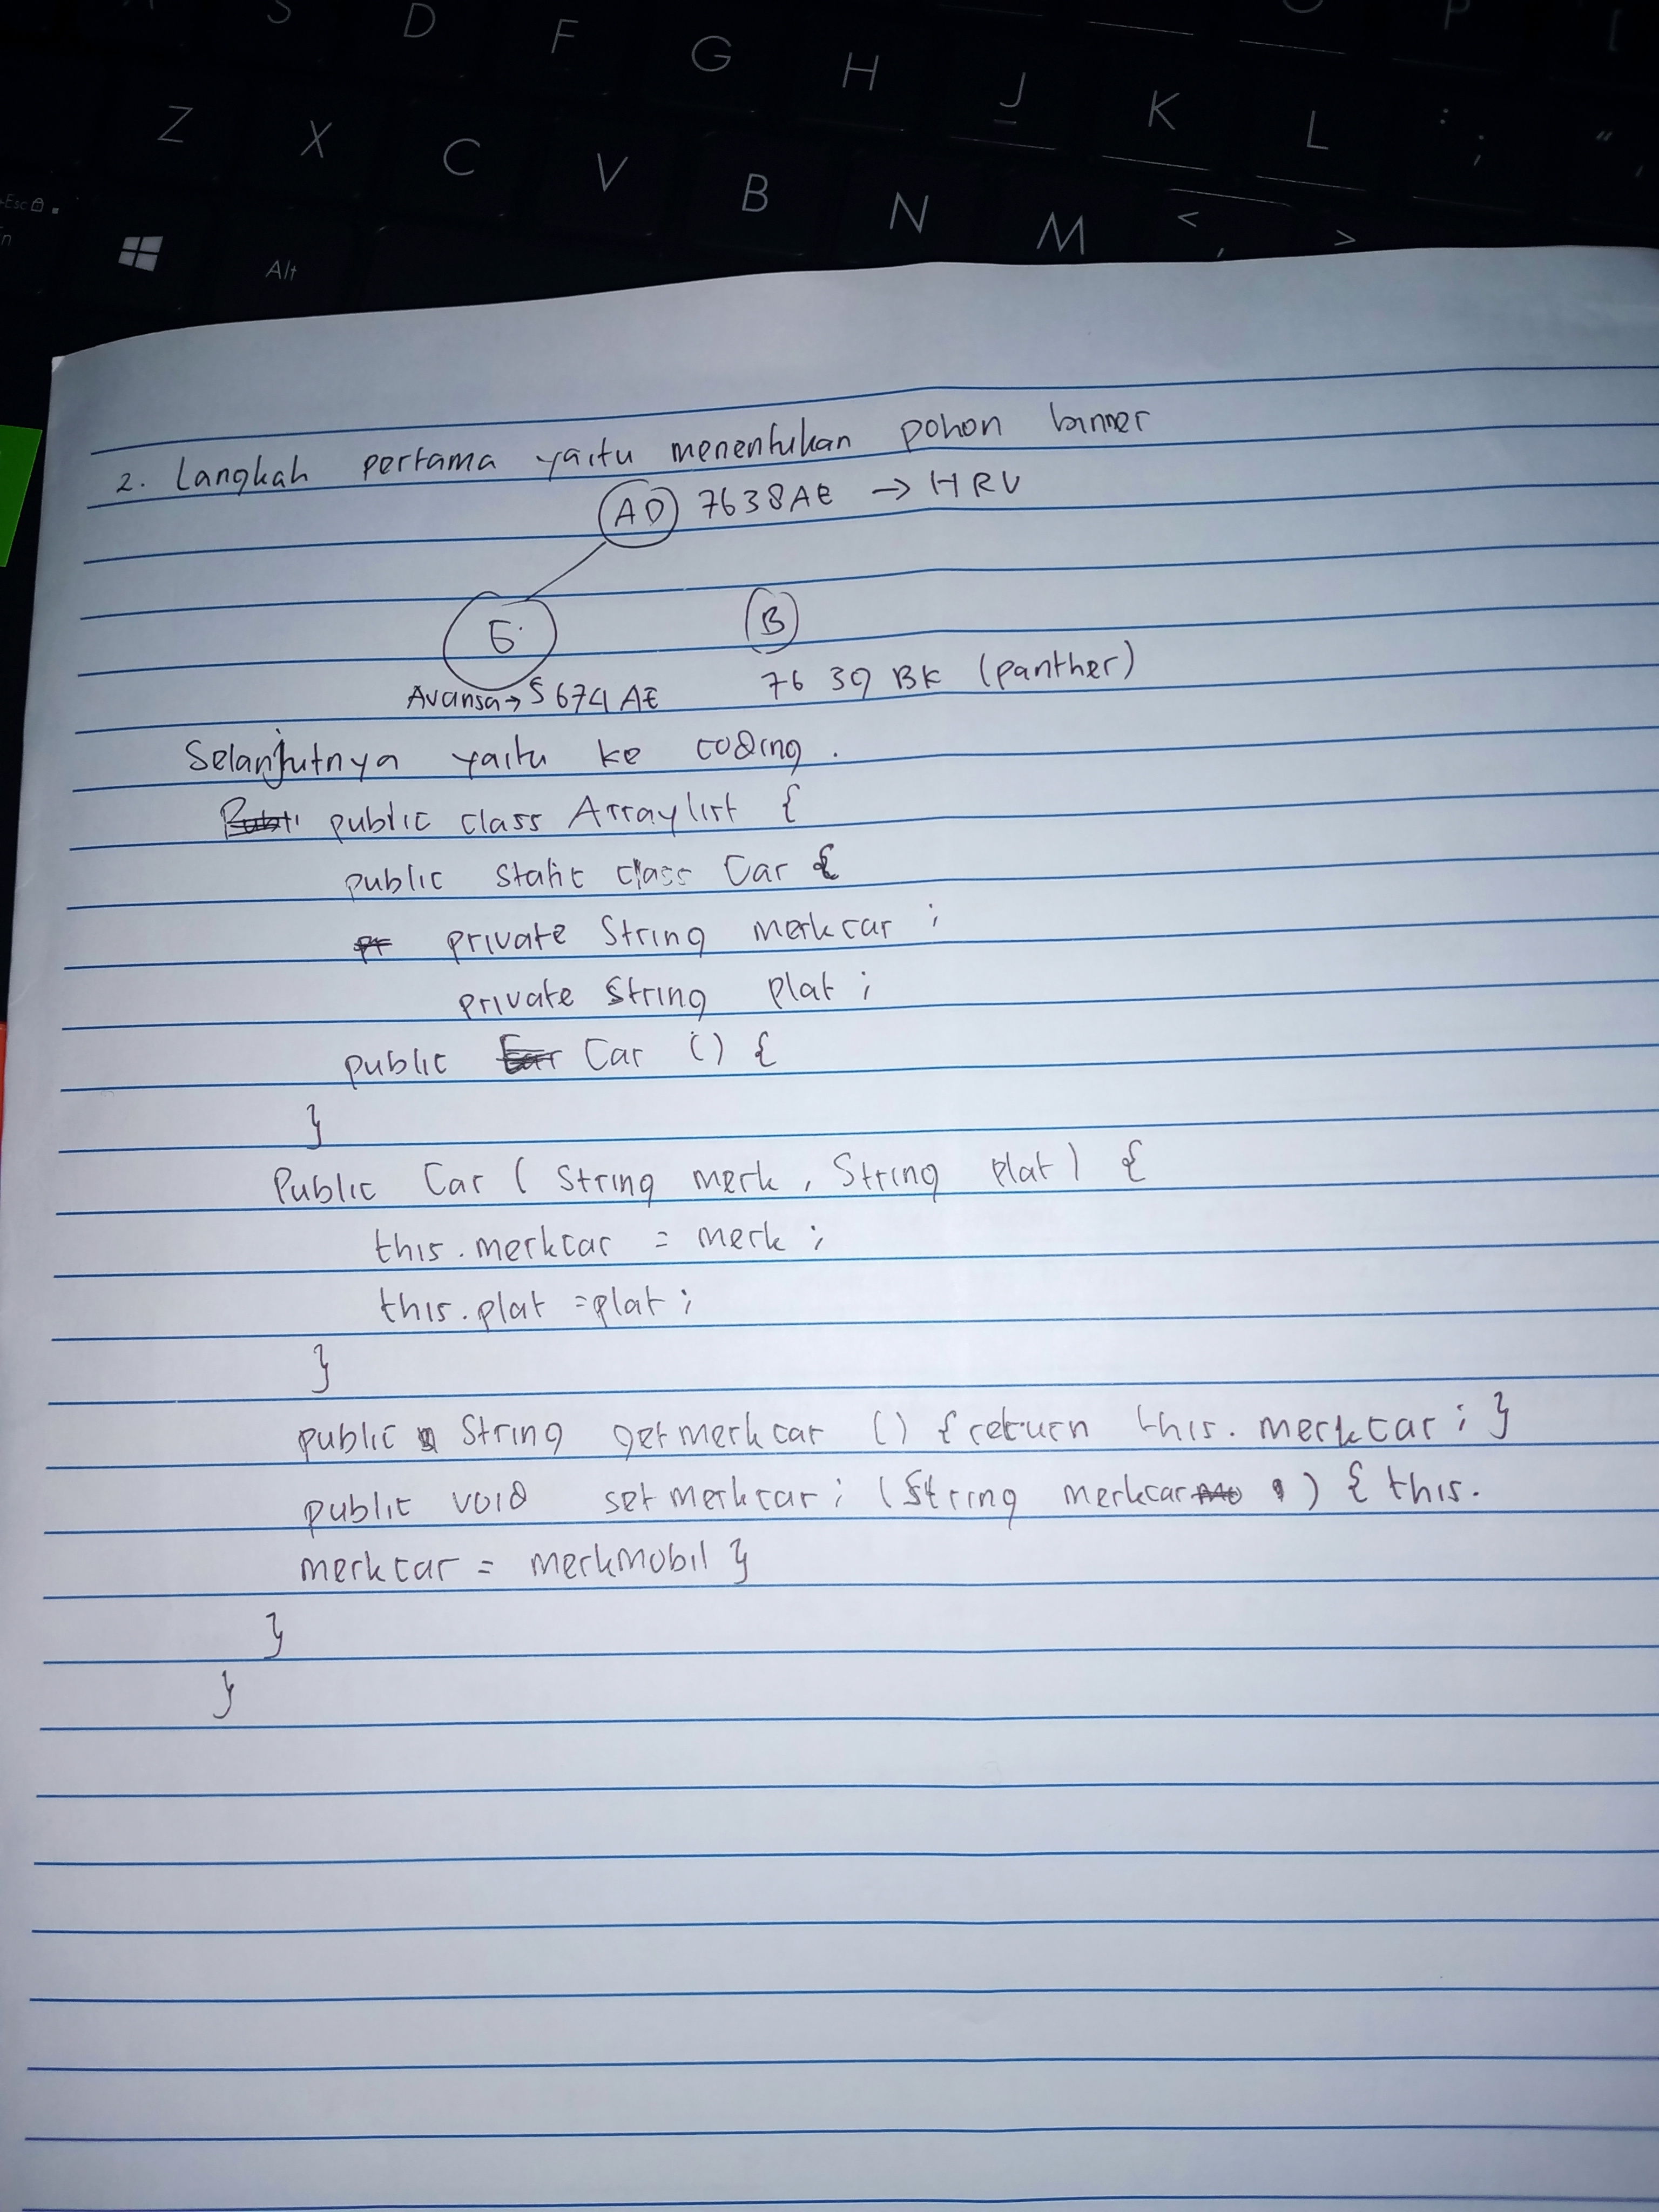 S D F G H J K L : ; "
P [
Z X C V B N M < , >
Esc
Alt
2. Langkah pertama yaitu menentukan pohon binner
AD 7638AE → HRV
G B
Avansa → 5674 AE 7639 BK (panther)
Selanjutnya yaitu ke coding.
public class Arraylist {
public static class Car {
private String merkcar ;
private String plat ;
public Car () {
}
Public Car ( String merk , String plat ) {
this.merkcar = merk ;
this.plat = plat ;
}
public String getmerkcar () { return this. merkcar ; }
public void setmerkcar ; (String merkcar ) { this.
merkcar = merkmobil }
}
}